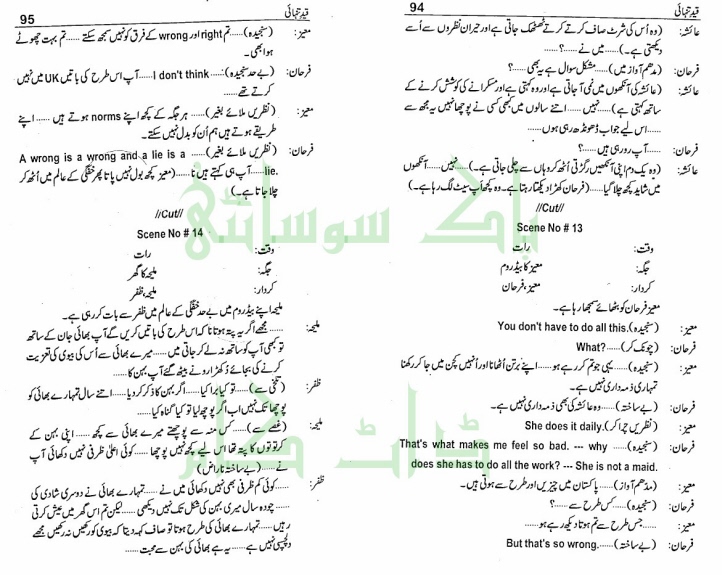 94
قید تنہائی
عائشہ: (وہ اُس کی شرٹ صاف کرتے کرتے ٹھٹھک جاتی ہے اور حیران نظروں سے اُسے
دیکھتی ہے۔).....میں نے.....؟.....
فرحان: (مدھم آواز میں).....مشکل سوال ہے یہ بھی.....؟
عائشہ: (عائشہ کی آنکھوں میں نمی آ جاتی ہے اور وہ کہتی ہے اور مسکرانے کی کوشش کرنے کے
ساتھ کہتی ہے).....نہیں.....اتنے سالوں میں کبھی کسی نے پوچھا نہیں یہ مجھ سے
.....اس لیے جواب ڈھونڈھ رہی ہوں.....
فرحان: .....آپ رو رہی ہیں.....؟
عائشہ: (وہ یک دم اپنی آنکھیں رگڑتی اُٹھ کر وہاں سے چلی جاتی ہے۔).....نہیں.....آنکھوں
میں شاید کچھ چلا گیا.....(فرحان کھڑا دیکھتا رہتا ہے۔ وہ کچھ اَپ سیٹ لگ رہا ہے۔)
//Cut//
Scene No # 13
وقت: رات
جگہ: معیز کا بیڈ روم
کردار: معیز، فرحان
معیز فرحان کو بٹھائے سمجھا رہا ہے۔
معیز: (سنجیدہ).You don't have to do all this
فرحان: (چونک کر) What?.....
معیز: (سنجیدہ).....یہی جو تم کر رہے ہو.....اپنے برتن اُٹھانا اور اُنہیں کچن میں جا کر رکھنا
تمہاری ذمہ داری نہیں ہے۔
فرحان: (بے ساختہ).....وہ عائشہ کی بھی ذمہ داری نہیں ہے۔
معیز: (نظریں چرا کر).She does it daily
فرحان: (سنجیدہ) That's what makes me feel so bad. --- why
does she has to do all the work? --- She is not a maid.
معیز: (مدھم آواز).....پاکستان میں چیزیں اور طرح سے ہوتی ہیں۔
فرحان: (سنجیدہ).....کس طرح سے.....؟
معیز: .....جس طرح سے تم ہوتا دیکھ رہے ہو.....
فرحان: (بے ساختہ).....But that's so wrong.
قید تنہائی
95
معیز: (سنجیدہ).....تم right اور wrong کے فرق کو نہیں سمجھ سکتے.....تم بہت چھوٹے
ہو ابھی۔
فرحان: (بے حد سنجیدہ):.....I don't think.....آپ اس طرح کی باتیں UK میں نہیں
کرتے تھے.....
معیز: (نظریں ملائے بغیر).....ہر جگہ کے کچھ اپنے norms ہوتے ہیں.....اپنے
طریقے ہوتے ہیں ہم اُن کو بدل نہیں سکتے۔
فرحان: (نظریں ملائے بغیر).....A wrong is a wrong and a lie is a
lie......آپ ہی کہتے ہیں نا.....(معیز کچھ بول نہیں پاتا پھر خفگی کے عالم میں اُٹھ کر
چلا جاتا ہے۔)
//Cut//
Scene No # 14
وقت: رات
جگہ: ملیحہ کا گھر
کردار: ملیحہ، ظفر
ملیحہ اپنے بیڈ روم میں بے حد خفگی کے عالم میں ظفر سے بات کر رہی ہے۔
ملیحہ: .....مجھے اگر یہ پتہ ہوتا نا کہ اس طرح کی باتیں کریں گے آپ بھائی جان کے ساتھ
تو کبھی آپ کو ساتھ نہ لے کر جاتی میں.....میرے بھائی سے اُس کی بیوی کی تعزیت
کرنے کی بجائے دُکھڑا رونے بیٹھ گئے آپ بہن کا.....
ظفر: (تلخی سے).....تو کیا برا کیا.....اگر بہن کا ذکر کر دیا.....اتنے سال تمہارے بھائی کو
پوچھا تک نہیں اب اگر پوچھ لیا تو کیا گناہ کیا.....
ملیحہ: (غصے سے).....کس منہ سے پوچھتے میرے بھائی سے کچھ.....اپنی بہن کے
کرتوتوں کا پتہ تھا اس لیے کچھ نہیں پوچھا.....کوئی اعلیٰ ظرفی نہیں دکھائی آپ
نے.....(بے ساختہ ناراض)
ظفر: .....کوئی کم ظرفی بھی نہیں دکھائی میں نے.....تمہارے بھائی نے دوسری شادی کی
.....چودہ سال میری بہن کی شکل تک نہیں دیکھی.....لیکن تم اس گھر میں عیش کرتی
رہیں.....تمہارے بھائی کی طرح ہوتا تو صاف کہہ دیتا کہ بیوی کو رکھیں نہ رکھیں مجھے
دلچسپی نہیں ہے.....یہ ہے بھائی کی بہن سے محبت.....
پاک سوسائٹی
ڈاٹ کام